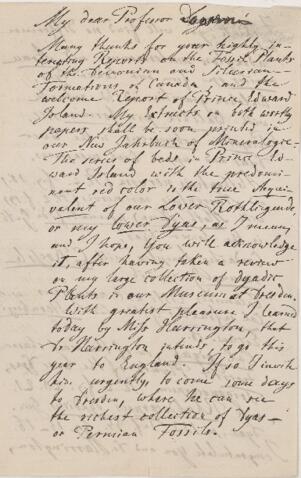 My dear Professor
Many thanks for your highly in-
teresting Reports on the Fossil Plants
of the Devonian and Silurian
Formations of Canada and the
welcome Report of Prince Edward
Island. My Extracts on both worthy
papers shall be soon printed in
our New Jahrbuch of Mineralogie.
The series of beds in Prince Ed-
ward Island with the predomi-
nant red color is the true Aequi-
valent of our Lower Rothliegende
or my lower Dyas, as I mean,
and I hope, You will acknowledge
it after having taken a review
on my large collection of dyadic
Plants in our Museum at Dresden.
With greatest pleasure I learned
today by Miss Harrington, that
Dr Harrington intends to go this
year to England. If so I invite
him, urgently, to come some days
to Dresden, where he can see
the richest collection of Dyas-
or Permian Fossils.